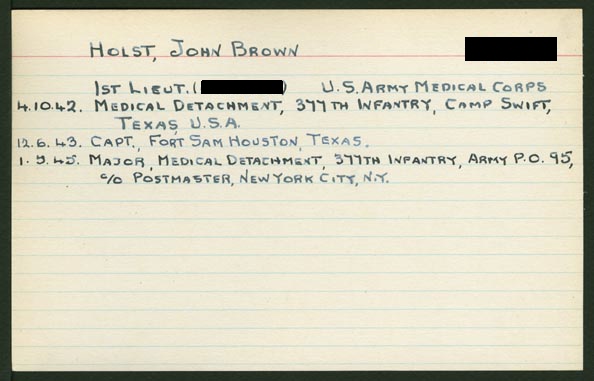 HOLST, JOHN BROWN
1ST LIEUT. ( ) U.S. ARMY MEDICAL CORPS
4.10.42. MEDICAL DETACHMENT, 377TH INFANTRY, CAMP SWIFT,
TEXAS, U.S.A.
12.6.43. CAPT., FORT SAM HOUSTON, TEXAS.
1.5.45. MAJOR, MEDICAL DETACHMENT, 377TH INFANTRY, ARMY P.O. 95,
c/o POSTMASTER, NEW YORK CITY, N.Y.